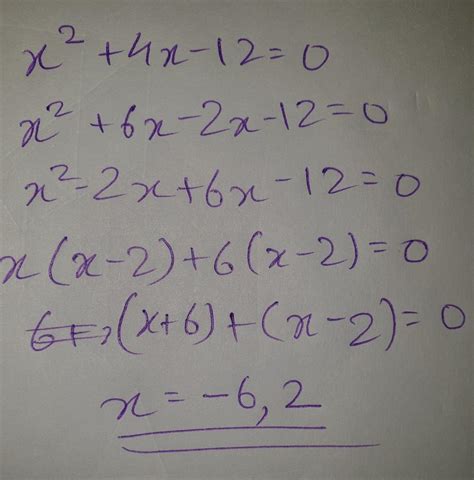 x² + 4x - 12 = 0
x² + 6x - 2x - 12 = 0
x² - 2x + 6x - 12 = 0
x(x-2) + 6(x-2) = 0
(x+6) + (x-2) = 0
x = -6, 2